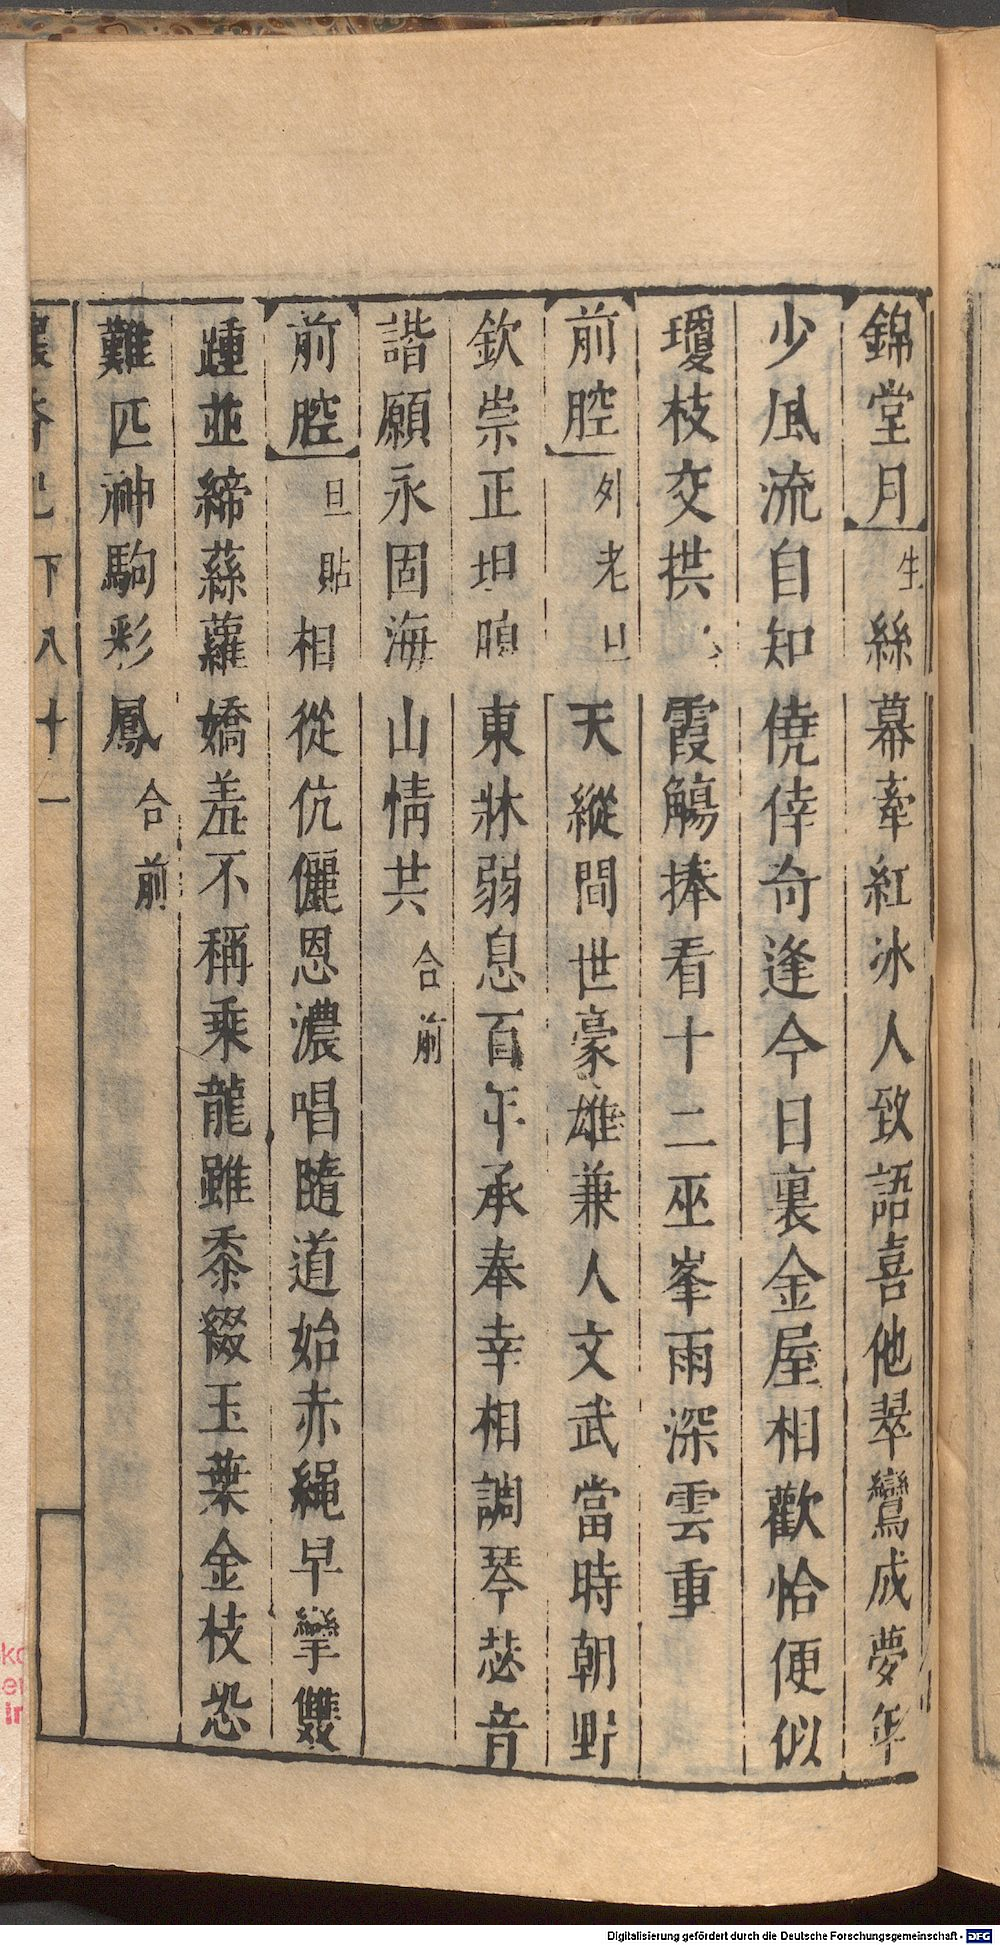 錦堂月 生 絲幕牽紅冰人致語喜他翠鸞成夢年
少風流自知僥倖奇逢今日裏金屋相歡恰便似
瓊枝交拱 合 霞觴捧看十二巫峯雨深雲重
前腔 外 老旦 天縱間世豪雄兼人文武當時朝野
欽崇正坦 東牀弱息百年承奉幸相調琴瑟音
諧願永固海山情共 合前
前腔 旦 貼 相從伉儷恩濃唱隨道始赤繩早攣雙
踵並締蘿嬌羞不稱乘龍雖忝綴玉葉金枝恐
難匹神駒彩鳳 合前
下 八十一
Digitalisierung gefördert durch die Deutsche Forschungsgemeinschaft - DFG